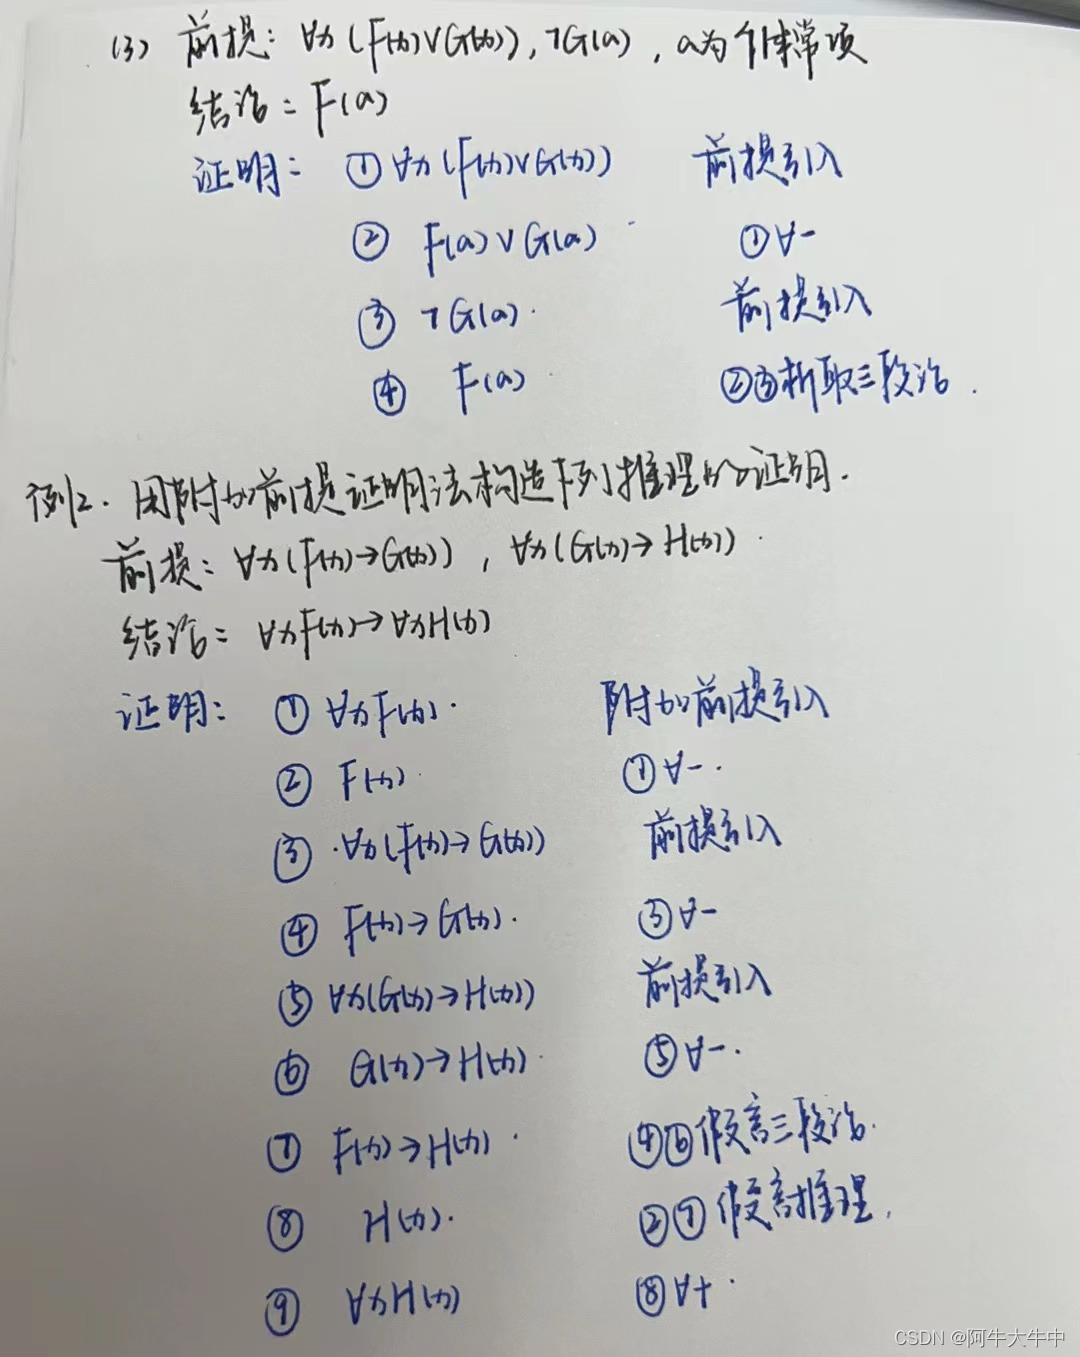 (3) 前提: ∀x(F(x)∨G(x)), ¬G(a), a为个体常项
结论: F(a)
证明: ① ∀x(F(x)∨G(x)) 前提引入
② F(a)∨G(a) ①∀-
③ ¬G(a) 前提引入
④ F(a) ②③析取三段论.
例2. 用附加前提证明法构造下列推理的证明.
前提: ∀x(F(x)→G(x)), ∀x(G(x)→H(x))
结论: ∀xF(x)→∀xH(x)
证明: ① ∀xF(x). 附加前提引入
② F(x) ①∀-.
③ ∀x(F(x)→G(x)) 前提引入
④ F(x)→G(x). ③∀-
⑤ ∀x(G(x)→H(x)) 前提引入
⑥ G(x)→H(x) ⑤∀-.
⑦ F(x)→H(x) ④⑥假言三段论.
⑧ H(x). ②⑦假言推理.
⑨ ∀xH(x) ⑧∀+.
CSDN @阿牛大牛中